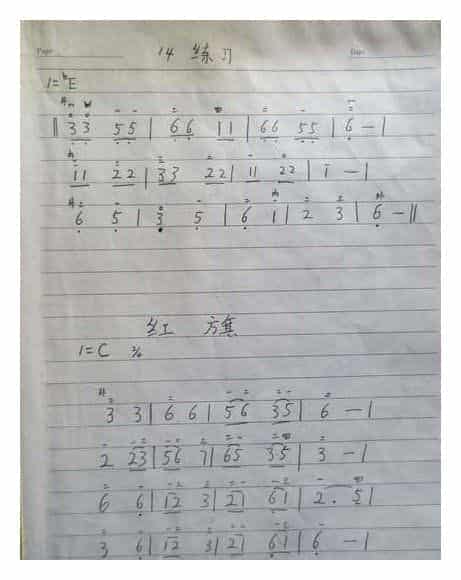 14 练习
1=♭E
‖ 3 3 5 5 | 6 6 1 1 | 6 6 5 5 | 6 - |
1 1 2 2 | 3 3 2 2 | 1 1 2 2 | 1 - |
6 5 | 3 5 | 6 1 | 2 3 | 6 - ‖
红 方旗
1=C 2/4
3 3 | 6 6 | 5 6 3 5 | 6 - |
2 2 3 | 5 6 7 | 6 5 3 5 | 3 - |
6 6 | 1 2 3 | 2 7 6 1 | 2 . 5 |
3 6 | 1 2 3 | 2 7 6 1 | 6 - |